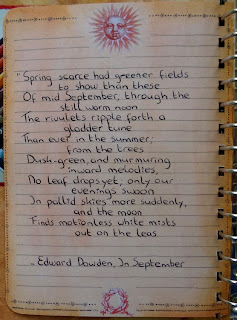 "Spring scarce had greener fields
to show than these
Of mid September; through the
still warm noon
The rivulets ripple forth a
gladder tune
Than ever in the summer;
from the trees
Dusk-green, and murmuring
inward melodies,
No leaf drops yet; only our
evenings swoon
In pallid skies more suddenly,
and the moon
Finds motionless white mists
out on the leas.
~ Edward Dowden, In September